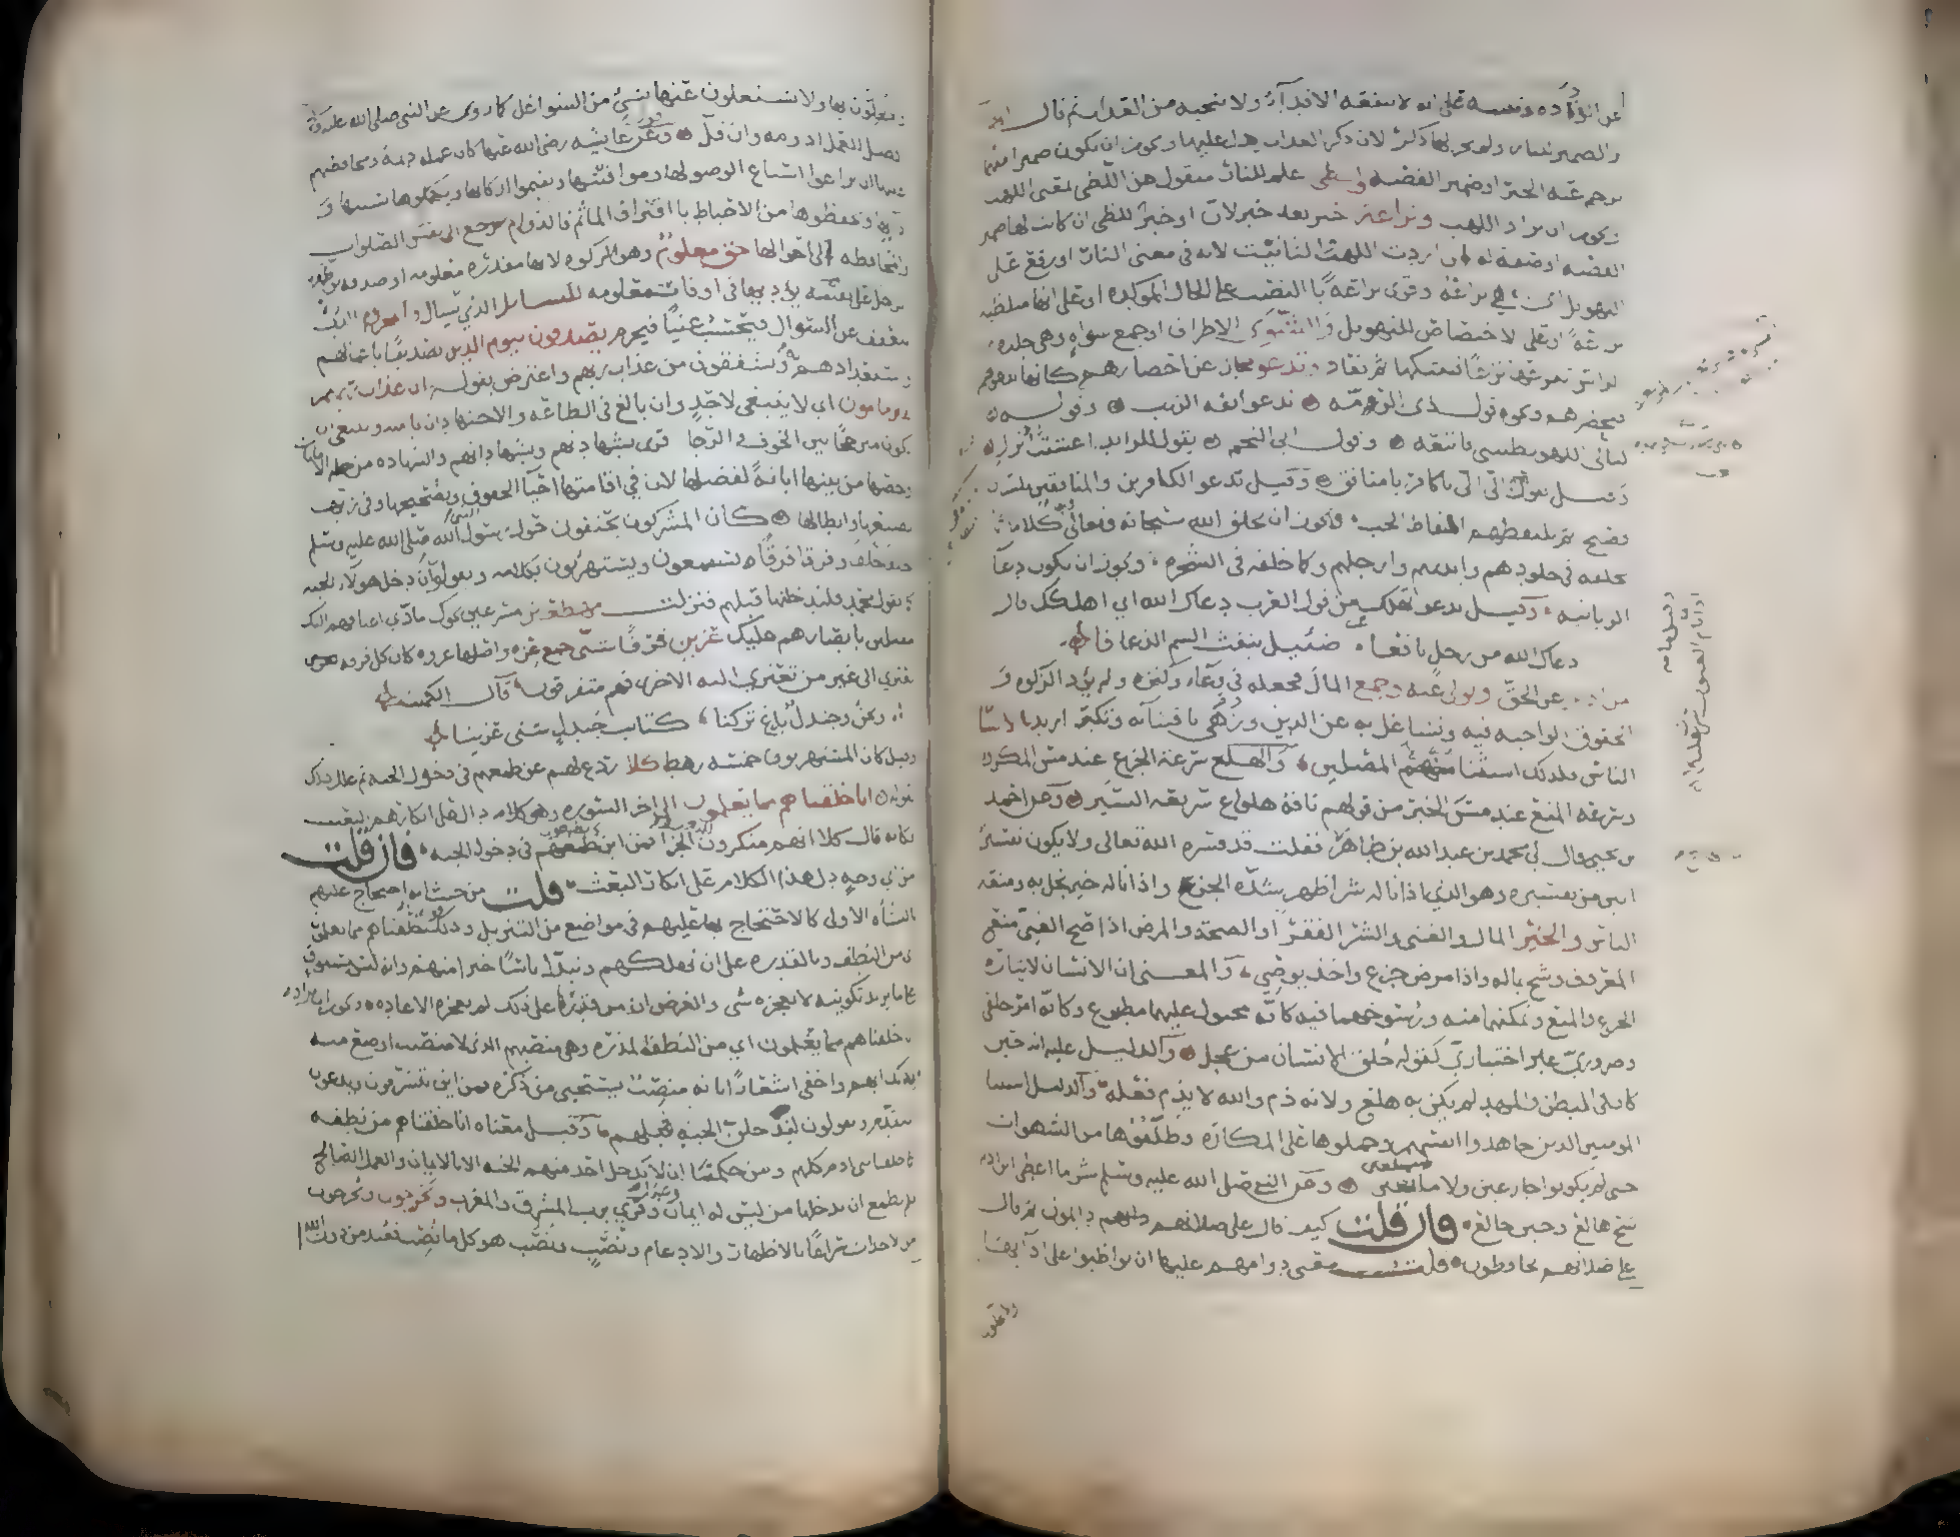 عن الوداده وتنبيه على انه لا ينفعه الافتداء ولا ينجيه من العذاب ثم قال انها
والضمير للنار ولم يجر لها ذكر لان ذكر العذاب دل عليها ويجوز ان يكون ضميرا مبهما
ترجم عنه الخبر او ضمير القصه ولظى علم للنار منقول من اللظى بمعنى اللهب
ويجوز ان يراد اللهب ونزاعة خبر بعد خبر لان او خبر للظى ان كانت لها ضمير
القصه او صفه له ان اردت اللهب والتانيث لانه في معنى النار او رفع على
التهويل اي هي نزاعة وقرى نزاعة بالنصب على الحال الموكده او على انها متلظيه
نزاعة او على الاختصاص للتهويل والشوى الاطراف او جمع شواه وهي جلده
الراس تنزعها نزعا فتبتكها ثم تعاد وتدعو مجاز عن احضارهم كانها تدعوهم
فتحضرهم ونحوه قول ذي الرمه تدعو انفه الربب وقوله
ليالي اللهو يطبيني فاتبعه وقول ابي النجم يقول للرايد اعشبت انزل
وقيل تقول لهم الي الي يا كافر يا منافق وقيل تدعو الكافرين والمنافقين بلسان
فصيح ثم تلتقطهم التقاط الحب فيجوز ان يخلق الله سبحانه وتعالى فيها كلاما كما
يخلقه في جلودهم وايديهم وارجلهم وكما خلقه في الشجره ويجوز ان يكون دعا
الزبانيه وقيل تدعو تهلك من قول العرب دعاك الله اي اهلكك قال
دعاك الله من رجل بافعى ضئيل ينفث السم الذعافا
من ادبر عن الحق وتولى عنه وجمع المال فجعله في وعاء وكنزه ولم يؤد الزكوه و
الحقوق الواجبه فيه وتشاغل به عن الدين وزهي باقتنائه وتكبر اريد بالانسان
الناس فلذلك استثنا منهم المصلين والهلع سرعة الجزع عند مس المكروه
وسرعة المنع عند مس الخير من قولهم ناقة هلواع سريعه السير وعن احمد
بن يحيى قال لي محمد بن عبد الله بن طاهر ما الهلع فقلت قد فسره الله تعالى ولا يكون تفسير
ابين من تفسيره وهو الذي اذا ناله شر اظهر شدة الجزع واذا ناله خير بخل به ومنعه
الناس والخير المال والغنى والشر الفقر او الصحة والمرض اذا صح الغني منع
المعروف وشح بماله واذا مرض جزع واخذ يوصي والمعنى ان الانسان لايثاره
الجزع والمنع وتمكنهما منه ورسوخهما فيه كانه مجبول عليهما مطبوع وكانه امر خلقي
وضروري غير اختياري كقوله خلق الانسان من عجل والدليل عليه انه حين
كان في البطن والمهد لم يكن به هلع ولانه ذم والله لا يذم فعله والدليل استثنا
المومنين الذين جاهدوا انفسهم وحملوها على المكاره وظلفوها من الشهوات
حتى لم يكونوا جازعين ولا مانعين وعن النبي صلى الله عليه وسلم شر ما اعطي ابن ادم
شح هالع وجبن خالع فان قلت كيف قال على صلاتهم دايمون ثم قال
على صلاتهم يحافظون قلت معنى دوامهم عليها ان يواظبوا على ادائها
ولا يخلون بها ولا يشتغلون عنها بشي من الشواغل كما روي عن النبي صلى الله عليه
افضل العمل ادومه وان قل وعن عايشه رضي الله عنها كان عمله ديمة ومحافظتهم
عليها ان يراعوا اسباغ الوضو لها ومواقيتها ويقيموا اركانها ويكملوها بسننها و
ادابها ويحفظوها من الاحباط باقتراف الماثم فالدوام يرجع الى نفس الصلوات
والمحافظه الى احوالها حق معلوم وهو الزكوه لانها مقدره معلومه او صدقه يوظفها
الرجل على نفسه يؤديها في اوقات معلومه للسائل الذي يسال والمحروم الذي
يتعفف عن السوال فيحتسب غنيا فيحرم يصدقون بيوم الدين تصديقا باعمالهم
واستعدادهم له ويشفقون من عذاب ربهم واعترض بقوله ان عذاب ربهم غير
مامون اي لا ينبغي لاحد وان بالغ في الطاعة والاجتهاد ان يامنه وينبغي ان
يكون مترجحا بين الخوف والرجا قرى بشهادتهم وبشهاداتهم والشهاده من جملة الامانات
وخصها من بينها ابانة لفضلها لان في اقامتها احياء الحقوق وتصحيحها وفي زيها
تضييعها وابطالها كان المشركون يحتفون حول النبي صلى الله عليه وسلم
حلقا حلقا وفرقا فرقا يستمعون ويستهزئون بكلامه ويقولون ان دخل هولاء الجنه
كما يقول محمد فلندخلنها قبلهم فنزلت مهطعين مسرعين نحوك مادي اعناقهم اليك
مقبلين بابصارهم عليك عزين فرقا شتى جمع عزه واصلها عزوه كان كل فرقه
تعتزي الى غير من تعتزي اليه الاخرى فهم متفرقون قال الكميت
ونحن وجندل باغ تركنا كتائب جندل شتى عزينا
وقيل كان المستهزئون خمسه رهط كلا ردع لهم عن طمعهم في دخول الجنه ثم علل ذلك
بقوله انا خلقناهم مما يعلمون الى اخر السوره وهو كلام دال على انكارهم البعث
فكانه قال كلا انهم منكرون للبعث والجزا فمن اين يطمعون في دخول الجنه فان قلت
من اي وجه دل هذا الكلام على انكار البعث قلت من حيث انه احتجاج عليهم
بالنشأه الاولى كالاحتجاج بها عليهم في مواضع من التنزيل وذلك قوله خلقناهم مما يعلمون
اي من النطف وبالقدره على ان نهلكهم ونبدل ناسا خيرا منهم وانه ليس بمسبوق
على ما يريد تكوينه لا يعجزه شي والغرض ان من قدر على ذلك لم يعجزه الاعاده ويجوز ان يراد
انا خلقناهم مما يعلمون اي من النطفه المذره وهي منصبهم الذي لا منصب اوضع منه
ولذلك ابهم واخفى اشعارا بانه منصب يستحيى من ذكره فمن اين يتشرفون ويدعون
التقدم ويقولون لندخلن الجنه قبلهم وقيل معناه انا خلقناهم من نطفه
كما خلقنا بني ادم كلهم ومن حكمنا ان لا يدخل احد منهم الجنه الا بالايمان والعمل الصالح
فلم يطمع ان يدخلها من ليس له ايمان وعمل وقرى برب المشرق والمغرب ويخرجون ويخرجون
من الاجداث سراعا بالاظهار والادغام ونصب ونصب هو كل ما نصب فعبد من دون الله